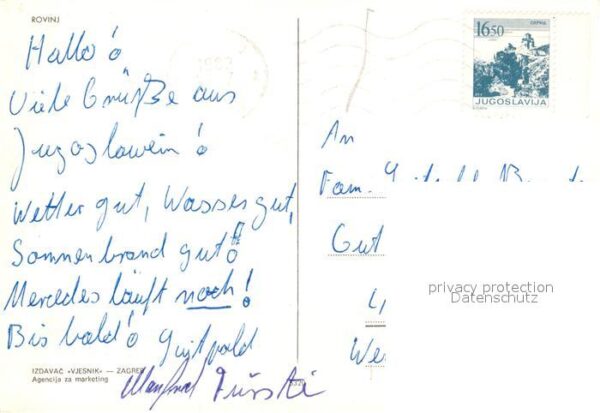 ROVINJ
Hallo!
Viele Grüße aus
Jugoslawein!
Wetter gut, Wasser gut,
Sonnenbrand gut!
Mercedes läuft noch!
Bis bald!
IZDAVAČ »VJESNIK« — ZAGREB
Agencija za marketing
Manfred
1983
16.50
JUGOSLAVIJA
An
Fam.
Gut
We
privacy protection
Datenschutz